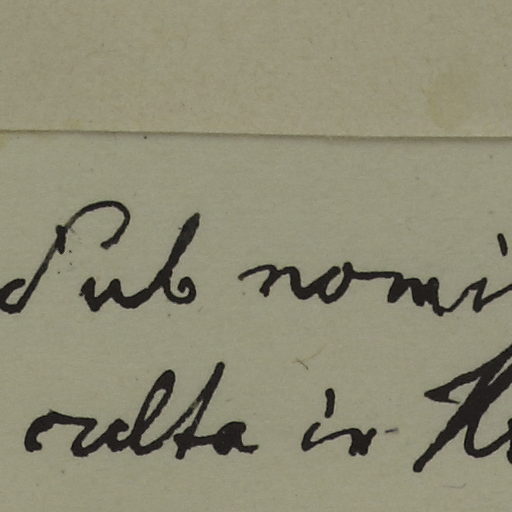 Sub nomi
culta in H